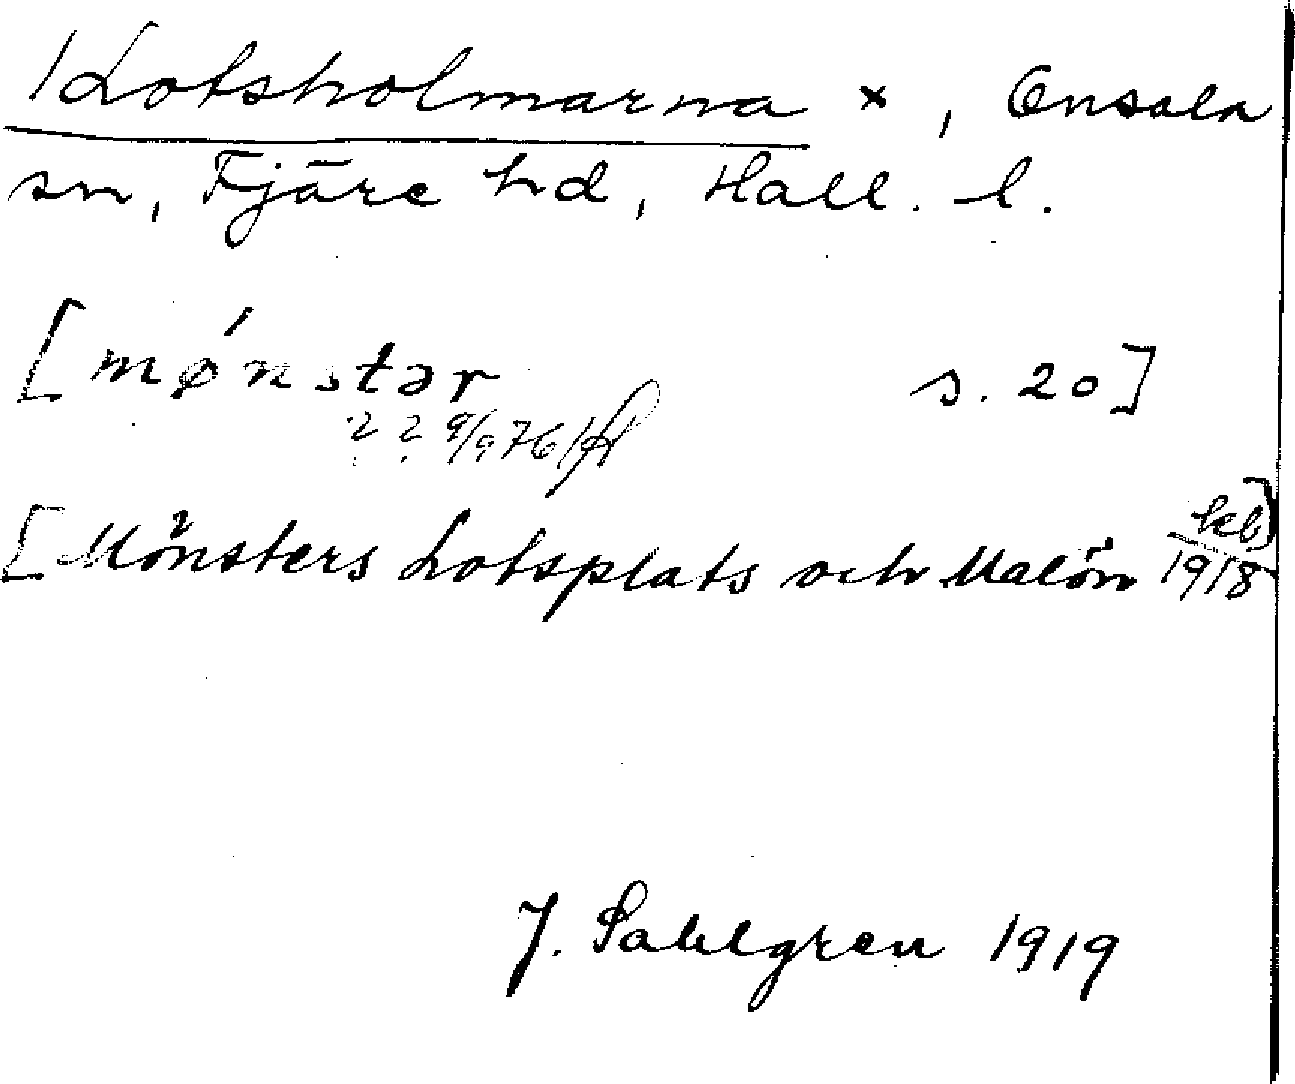 Lotsholmarna ×, Onsala
sn, Fjäre hd, Hall. l.
[mǿnstər s. 20]
? ? 9/9 76
[Mönsters Lotsplats och Malön kb 1918]
J. Sahlgren 1919